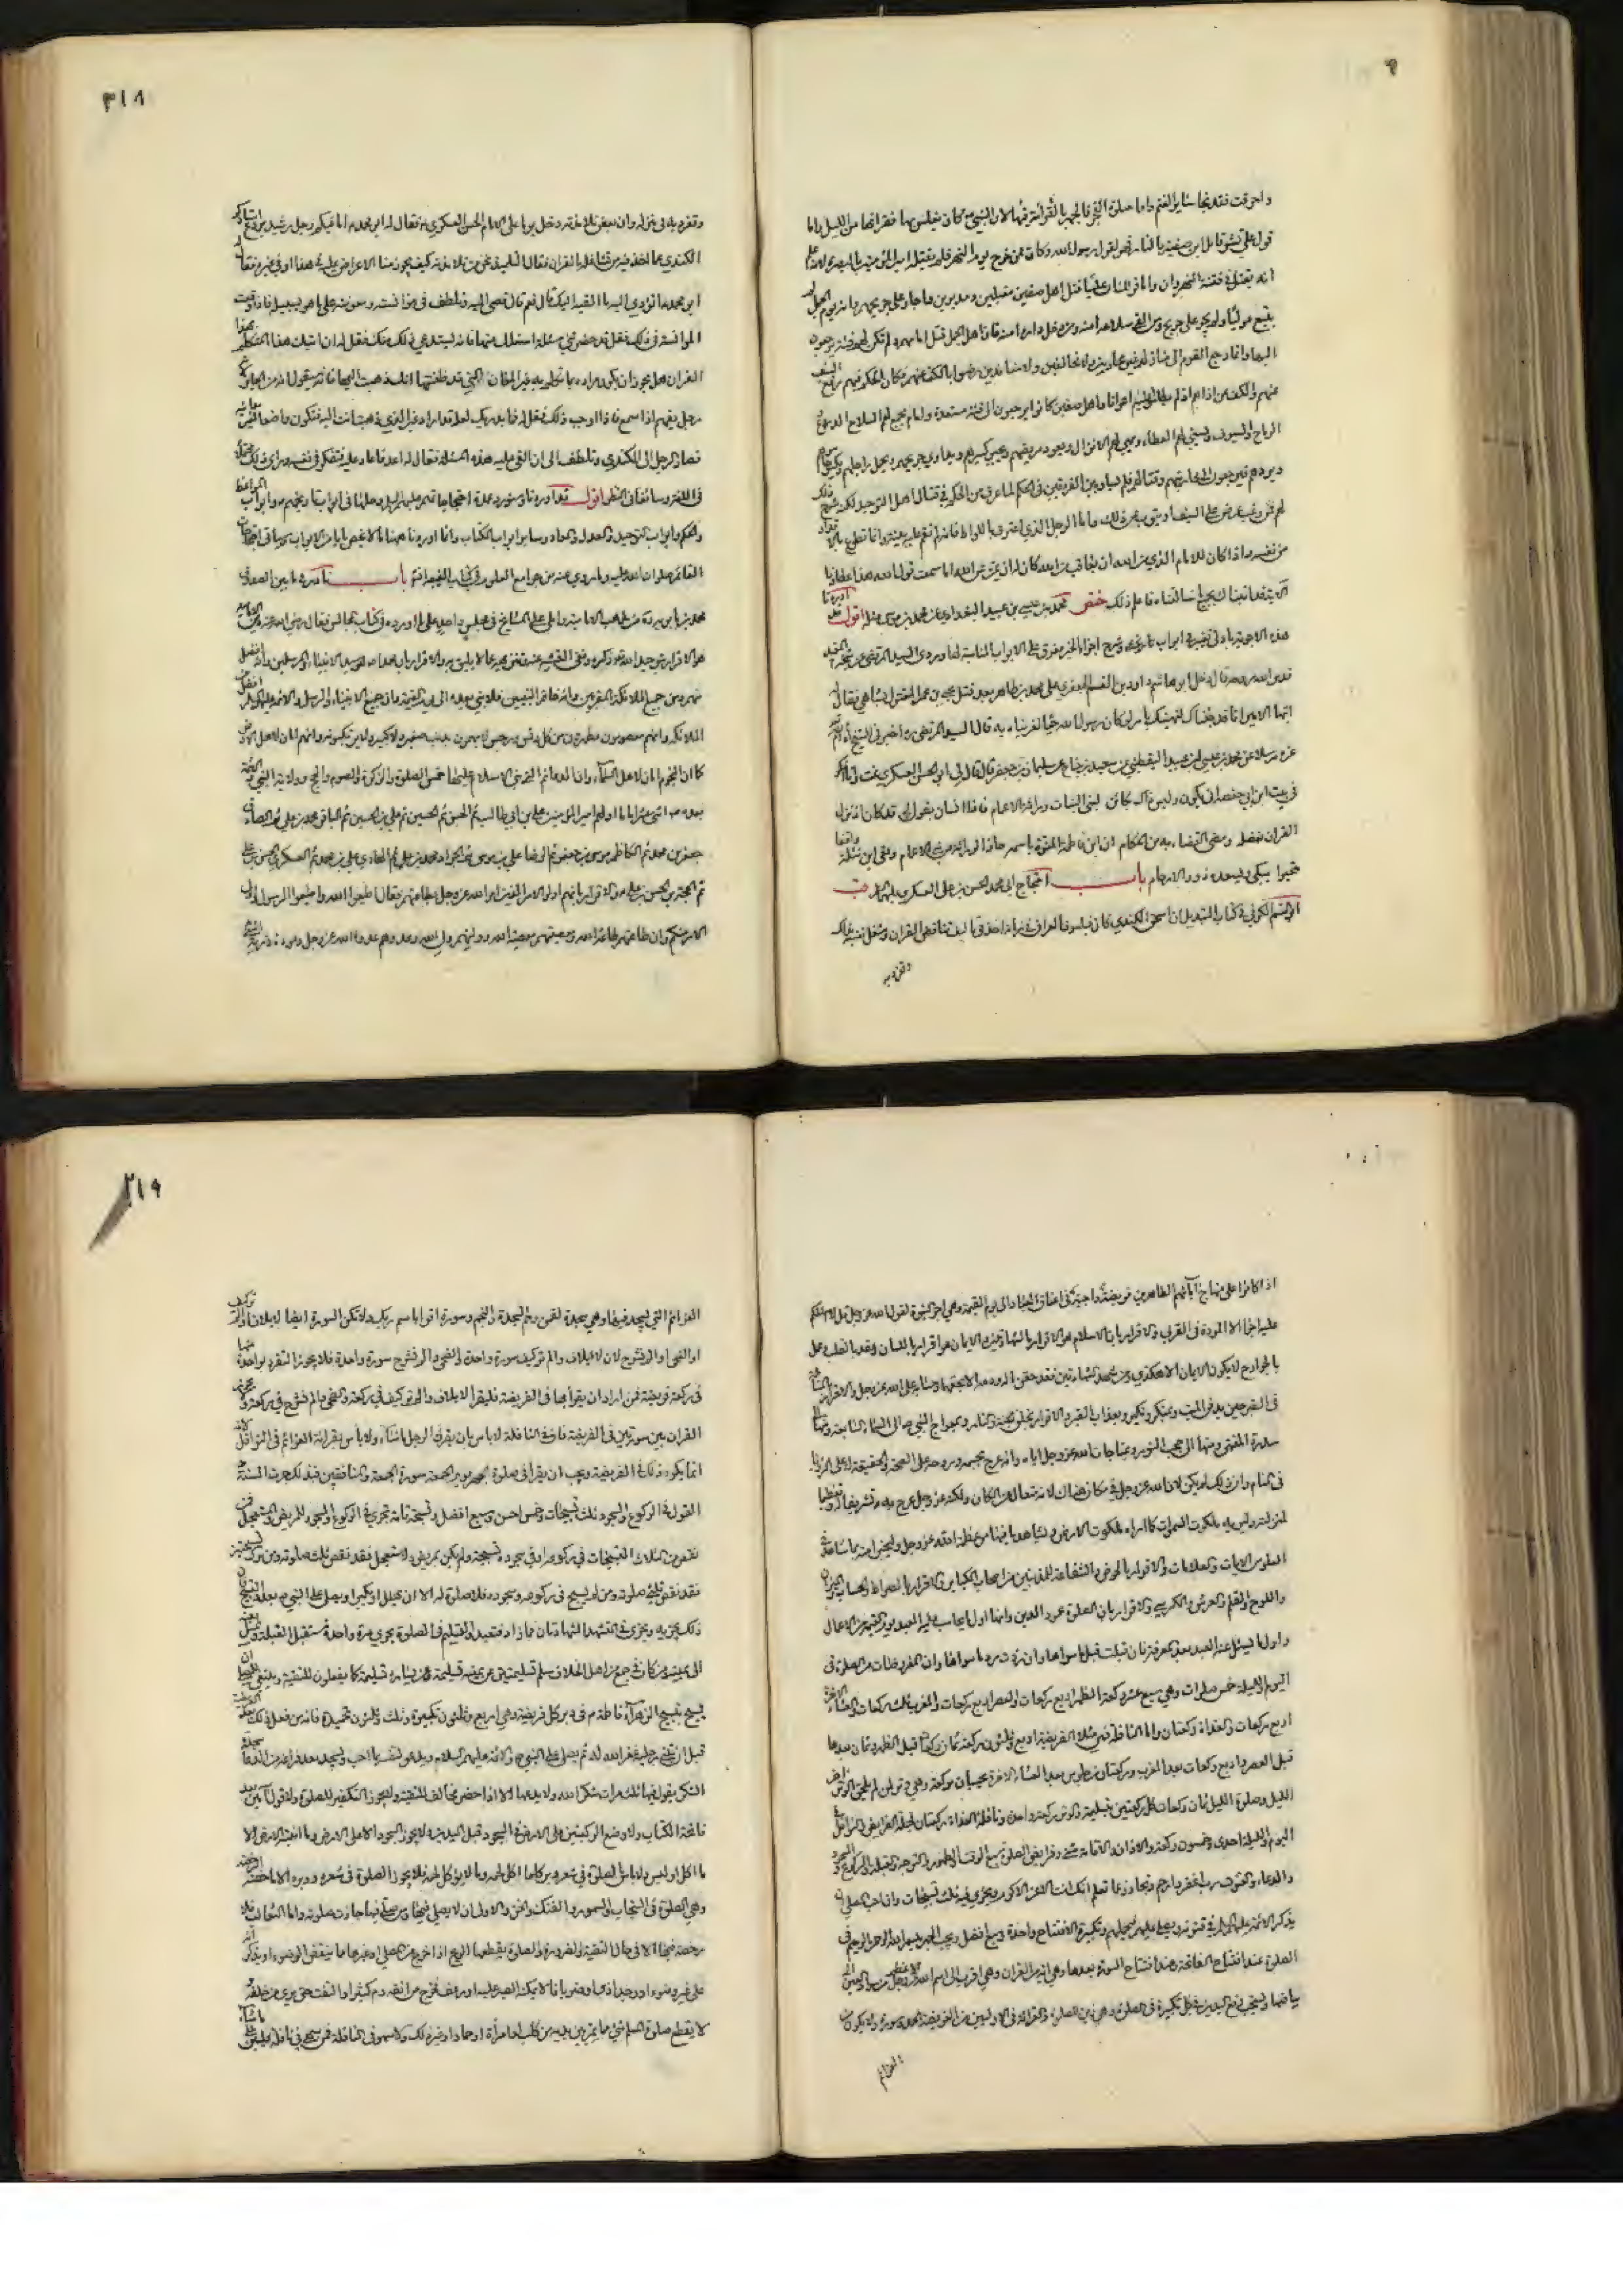 واحرقت فقد نجا سائر الغنم واما صلوة الفجر فالجهر بالقراءة فيها لان النبي ص كان يغلس بها فقرائتها من الليل واما
قول علي بشر قاتل ابن صفية بالنار فهو لقول رسول الله وكان ممن خرج يوم النهر فلم يقتله امير المؤمنين بالبصرة لانه علم
انه يقتل في فتنة النهروان واما قولك ان عليا قتل اهل صفين مقبلين ومدبرين واجاز على جريحهم وانه يوم الجمل لم
يتبع موليا ولم يجز على جريح ومن القى سلاحه امنه ومن دخل داره امنه فان اهل الجمل قتل امامهم ولم تكن لهم فئة يرجعون
اليها وانما رجع القوم الى منازلهم غير محاربين ولا مخالفين ولا منابذين رضوا بالكف عنهم فكان الحكم فيهم رفع السيف
عنهم والكف عن اذاهم اذ لم يطلبوا عليه اعوانا واهل صفين كانوا يرجعون الى فئة مستعدة وامام يجمع لهم السلاح الدروع
الرماح والسيوف ويسني لهم العطاء ويهيئ لهم الانزال ويعود مريضهم ويجبر كسيرهم ويداوي جريحهم ويحمل راجلهم ويكسو حاسرهم
ويردهم فيرجعون الى محاربتهم وقتالهم فلم يساو بين الفريقين في الحكم لما عرف من الحكم في قتال اهل التوحيد لكنه شرح ذلك
لهم فمن رغب عرض على السيف او يتوب من ذلك واما الرجل الذي اعترف باللواط فانه لم تقم عليه بينة وانما تطوع بالاقرار
من نفسه واذا كان للامام الذي من الله ان يعاقب عن الله كان له ان يمن عن الله اما سمعت قول الله هذا عطاؤنا
محمد بن عيسى بن عبيد البغدادي عن محمد بن موسى مثله اقول
هذه الاجوبة بادنى تغيير في ابواب تاريخه وشرح اجزاء الخبر مفرق على الابواب المناسبة لها وروى السيد المرتضى عن شيخه المفيد
قدس الله روحهما قال دخل ابو هاشم داود بن القسم الجعفري على محمد بن طاهر بعد قتل يحيى بن عمر المقتول بشاهي فقال له
ايها الامير انا قد جئناك لنهنيك بامر لو كان رسول الله حيا لعزيناه به قال السيد المرتضى ره اخبرني الشيخ
عزه مرسلا عن محمد بن عيسى بن عبيد اليقطيني عن سعيد بن جناح عن سليمان بن جعفر قال قال لي ابو الحسن العسكري نمت وانا افكر
في بيت ابن ابي حفصة انى يكون وليس ذاك بكائن لبني البنات وراثة الاعمام فاذا انسان يقول لي قد كان اذ نزل
القران بفضله ومضى القضاء به من الحكام ان ابن فاطمة المنوه باسمه حاز الوراثة عن بني الاعمام وبقي ابن نثلة واقفا
متحيرا يبكي ويسعده ذوو الارحام باب احتجاج ابي محمد الحسن بن علي العسكري عليهما قب
ابو القسم الكوفي في كتاب التبديل ان اسحق الكندي كان فيلسوف العراق في زمانه اخذ في تاليف تناقض القران وشغل نفسه بذلك
وتفرد به
٣١٨
وتفرد به في منزله وان بعض تلامذته دخل يوما على الامام الحسن العسكري ع فقال له ابو محمد ع اما فيكم رجل رشيد يردع استاذكم
الكندي عما اخذ فيه من تشاغله بالقران فقال التلميذ نحن من تلامذته كيف يجوز منا الاعتراض عليه في هذا او في غيره فقال له
ابو محمد ع اتؤدي اليه ما القيه اليك قال نعم قال فصر اليه وتلطف في مؤانسته ومعونته على ما هو بسبيله فاذا وقعت
الموانسة في ذلك فقل قد حضرتني مسئلة اسئلك عنها فانه يستدعي ذلك منك فقل له ان اتاك هذا المتكلم بهذا
القران هل يجوز ان يكون مراده بما تكلم به غير المعاني التي قد ظننتها انك ذهبت اليها فانه سيقول انه من الجائز لانه
رجل يفهم اذا سمع فاذا اوجب ذلك فقل له فما يدريك لعله قد اراد غير الذي ذهبت انت اليه فتكون واضعا لغير معانيه
فصار الرجل الى الكندي وتلطف الى ان القى عليه هذه المسئلة فقال له اعد علي فاعاد عليه فتفكر في نفسه وراى ذلك محتملا
في اللغة وسائغا في النظر اقول قد اوردنا وسنورد عمدة احتجاجاتهم عليهم السلام وجلها في ابواب تاريخهم وابواب المواعظ
والحكم وابواب التوحيد والعدل والمعاد وسائر ابواب الكتاب وانما اوردنا ههنا ما لا يخص بابا من الابواب
القائم صلوات الله عليه وما روي عنه من جوامع العلوم في كتاب الغيبة باب نادر فيما بين الصدوق
محمد بن بابويه ره من مذهب الامامية واملى على المشايخ في مجلس واحد على ما اورده في كتاب المجالس فقال رضي الله عنه دين الامامية
هو الاقرار بتوحيد الله تعالى ذكره ونفي التشبيه عنه وتنزيهه عما لا يليق به والاقرار بان محمدا ص سيد الانبياء والمرسلين وانه افضل
منهم ومن جميع الملائكة المقربين وانه خاتم النبيين فلا نبي بعده الى يوم القيمة وان جميع الانبياء والرسل والائمة عليهم السلام افضل من
الملائكة وانهم معصومون مطهرون من كل دنس ورجس لا يهمون بذنب صغير ولا كبير ولا يرتكبونه وانهم امان لاهل الارض
كما ان النجوم امان لاهل السماء وان الدعائم التي بني الاسلام عليها خمس الصلوة والزكوة والصوم والحج وولاية النبي والائمة
بعده ص اثنى عشر اماما اولهم امير المؤمنين علي بن ابي طالب ثم الحسن ثم الحسين ثم علي بن الحسين ثم الباقر محمد بن علي ثم الصادق
جعفر بن محمد ثم الكاظم موسى بن جعفر ثم الرضا علي بن موسى ثم الجواد محمد بن علي ثم الهادي علي بن محمد ثم العسكري الحسن بن علي
ثم الحجة بن الحسن بن علي والاقرار بانهم اولو الامر الذين امر الله عز وجل بطاعتهم فقال اطيعوا الله واطيعوا الرسول واولي
الامر منكم وان طاعتهم طاعة الله ومعصيتهم معصية الله ووليهم ولي الله وعدوهم عدو الله عز وجل ومودة ذرية النبي
اذا كانوا على منهاج آبائهم الطاهرين فريضة واجبة في اعناق العباد الى يوم القيمة وهي اجر النبوة لقول الله عز وجل قل لا اسئلكم
عليه اجرا الا المودة في القربى والاقرار بان الاسلام هو الاقرار بالشهادتين والايمان هو اقرار باللسان وعقد بالقلب وعمل
بالجوارح لا يكون الايمان الا هكذا ومن شهد الشهادتين فقد حقن ماله ودمه الا بحقهما وحسابه على الله عز وجل والاقرار بالمسائلة
في القبر حين يدفن الميت وبمنكر ونكير وبعذاب القبر والاقرار بخلق الجنة والنار وبمعراج النبي ص الى السماء السابعة ومنها
سدرة المنتهى ومنها الى حجب النور وبمناجات الله عز وجل اياه وانه عرج بجسمه وروحه على الصحة والحقيقة لا على الرؤيا
في المنام وان ذلك لم يكن لان الله عز وجل في مكان هناك لانه متعال عن المكان ولكنه عز وجل عرج به ص تشريفا له وتعظيما
لمنزلته وليريه ملكوت السموات كما اراه ملكوت الارض ويشاهد ما فيها من عظمة الله عز وجل وليخبر امته بما شاهد في
العلو من الايات والعلامات والاقرار بالحوض والشفاعة للمذنبين من اصحاب الكبائر والاقرار بالصراط والحساب والميزان
واللوح والقلم والعرش والكرسي والاقرار بان الصلوة عمود الدين وانها اول ما يحاسب عليه العبد يوم القيمة من الاعمال
واول ما يسئل عنه العبد بعد المعرفة فان قبلت قبل ما سواها وان ردت رد ما سواها وان المفروضات من الصلوة في
اليوم والليلة خمس صلوات وهي سبع عشرة ركعة الظهر اربع ركعات والعصر اربع ركعات والمغرب ثلث ركعات والعشاء الاخرة
اربع ركعات والغداة ركعتان واما النافلة فهي مثلا الفريضة اربع وثلثون ركعة ثمان ركعات قبل الظهر وثمان بعدها
قبل العصر واربع ركعات بعد المغرب وركعتان من جلوس بعد العشاء الاخرة يحسبان بركعة وهي وتر لمن لم يلحق الوتر اخر
الليل وصلوة الليل ثمان ركعات كل ركعتين بتسليمة والوتر ركعة واحدة ونافلة الغداة ركعتان فجملة الفرائض والنوافل في
اليوم والليلة احدى وخمسون ركعة والاذان والاقامة مثنى وفرائض الصلوة سبع الوقت والطهور والتوجه والقبلة والركوع والسجود
والدعاء والقنوت
يذكر الائمة عليهم السلام في قنوته ويصلي عليهم فيجملهم وتكبيرة الافتتاح واحدة وسبع افضل ويجب الجهر ببسم الله الرحمن الرحيم في
الصلوة عند افتتاح الفاتحة وعند افتتاح السورة بعدها وهي آية من القران وهي اقرب الى اسم الله الاعظم من سواد العين الى
بياضها ويستحب رفع اليدين في كل تكبيرة في الصلوة وهو زين الصلوة والقراءة في الاوليين من الفريضة الحمد وسورة ولا يكون من
العزائم
٣١٩
العزائم التي يسجد فيها وهي سجدة لقمن وحم السجدة والنجم وسورة اقرا باسم ربك ولا تكن السورة ايضا لايلاف او الم تر كيف
او الضحى او الم نشرح لان لايلاف والم تر كيف سورة واحدة والضحى والم نشرح سورة واحدة فلا يجوز التفرد بواحدة منها
في ركعة فريضة فمن اراد ان يقرا بها في الفريضة فليقرا لايلاف والم تر كيف في ركعة والضحى والم نشرح في ركعة ولا يجوز
القران بين سورتين في الفريضة فاما في النافلة فلا باس بان يقرن الرجل ما شاء ولا باس بقرائة العزائم في النوافل لانه
انما يكره ذلك في الفريضة ويجب ان يقرا في صلوة الظهر يوم الجمعة سورة الجمعة والمنافقين فبذلك جرت السنة و
القول في الركوع والسجود ثلث تسبيحات وخمس احسن وسبع افضل وتسبيحة تامة تجزي في الركوع والسجود للمريض والمستعجل فمن
نقص من الثلاث التسبيحات في ركوعه او في سجوده تسبيحة ولم يكن بمريض ولا مستعجل فقد نقص ثلث صلوته ومن ترك تسبيحتين
فقد نقص ثلثي صلوته ومن لم يسبح في ركوعه وسجوده فلا صلوة له الا ان يهلل او يكبر او يصلي على النبي ص بعدد التسبيح فان
ذلك يجزيه ويجزي في التشهد الشهادتان فما زاد فتعبد والتسليم في الصلوة يجزي مرة واحدة مستقبل القبلة ويميل بعينه
الى يمينه ومن كان في جمع من اهل الخلاف سلم تسليمتين عن يمينه تسليمة وعن يساره تسليمة كما يفعلون للتقية وينبغي للمصلي ان
يسبح بتسبيح الزهراء فاطمة ع في دبر كل فريضة وهي اربع وثلثون تكبيرة وثلث وثلثون تسبيحة وثلث وثلثون تحميدة فانه من فعل ذلك بعد الفريضة
قبل ان يثني رجليه غفر الله له ثم يصلي على النبي ص والائمة عليهم السلام ويدعو لنفسه بما احب ويسجد بعد فراغه من الدعاء سجدة
الشكر يقول فيها ثلث مرات شكرا لله ولا يدعها الا اذا حضر مخالف للتقية ولا يجوز التكفير في الصلوة ولا قول آمين بعد
فاتحة الكتاب ولا وضع الركبتين على الارض في السجود قبل اليدين ولا يجوز السجود الا على الارض او ما انبتته الارض الا
ما اكل او لبس ولا باس بالصلوة في شعر ووبر كل ما اكل لحمه وما لا يؤكل لحمه فلا يجوز الصلوة في شعره ووبره الا ما خصته الرخصة
وهي الصلوة في السنجاب والسمور والفنك والخز والاولى ان لا يصلى فيها ومن صلى فيها جازت صلوته واما الثعالب فلا
رخصة فيها الا في حال التقية والضرورة والصلوة يقطعها الريح اذا خرج من المصلي او غيرها مما ينقض الوضوء او يذكر انه
على غير وضوء او وجد اذى او ضربانا لا يمكنه الصبر عليه او رعف فخرج من انفه دم كثير او التفت حتى يرى من خلفه
لا يقطع صلوة المسلم شيء مما يمر بين يديه من كلب او امراة او حمار او غير ذلك ولا سهو في النافلة فمن سهى في نافلة فليبن على ما شاء